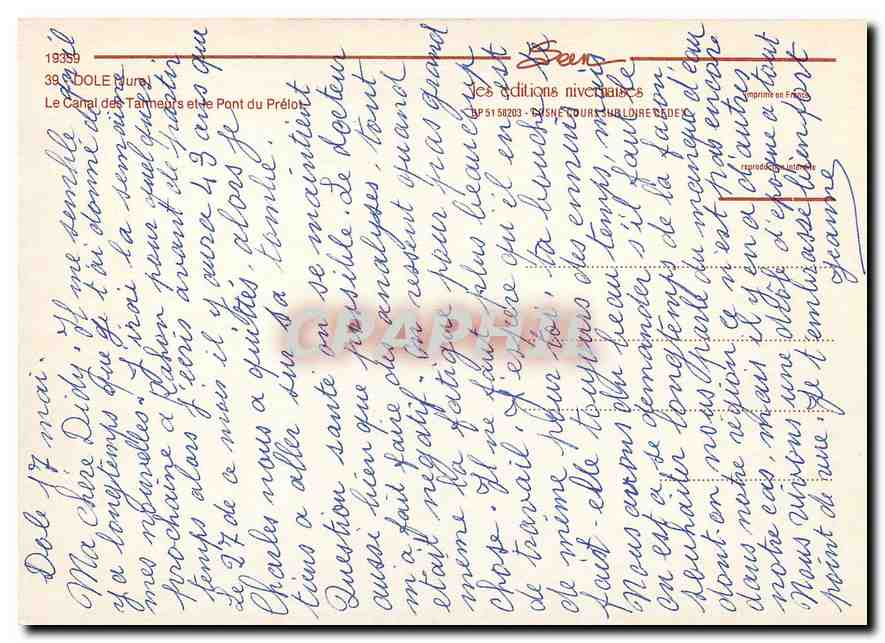 19359
39 - DOLE (Jura)
Le Canal des Tanneurs et le Pont du Prélot
les éditions nivernaises
BP 51 58203 - COSNE COURS SUR LOIRE CEDEX
imprimé en France
reproduction interdite
CPAPHIL
Dole 17 mai.
Ma chère Didy. Il me semble qu'il
y a longtemps que je t'ai donné de
mes nouvelles. J'irai la semaine
prochaine à Rahon pour quelques
temps alors j'écris avant de partir
Le 27 de ce mois il y aura 43 ans que
Charles nous a quittés, alors je
tiens a aller sur sa tombe.
Question santé on se maintient
aussi bien que possible. Le docteur
m'a fait faire des analyses, tout
était négatif. On ressent quand
même la fatigue pour pas grand
chose. Il ne faut plus beaucoup
de travail. J'espère qu'il en est
de même pour toi. Ta bouche te
fait-elle toujours des ennuis
Nous avons du beau temps, mais
on est a se demander s'il faut le
souhaiter longtemps de la façon
dont on nous parle du manque d'eau
dans notre région ce n'est pas encore
notre cas, mais il y en a d'autres
Nous vivons une drôle d'époque a tout
point de vue. Je t'embrasse bien fort
Jeanne